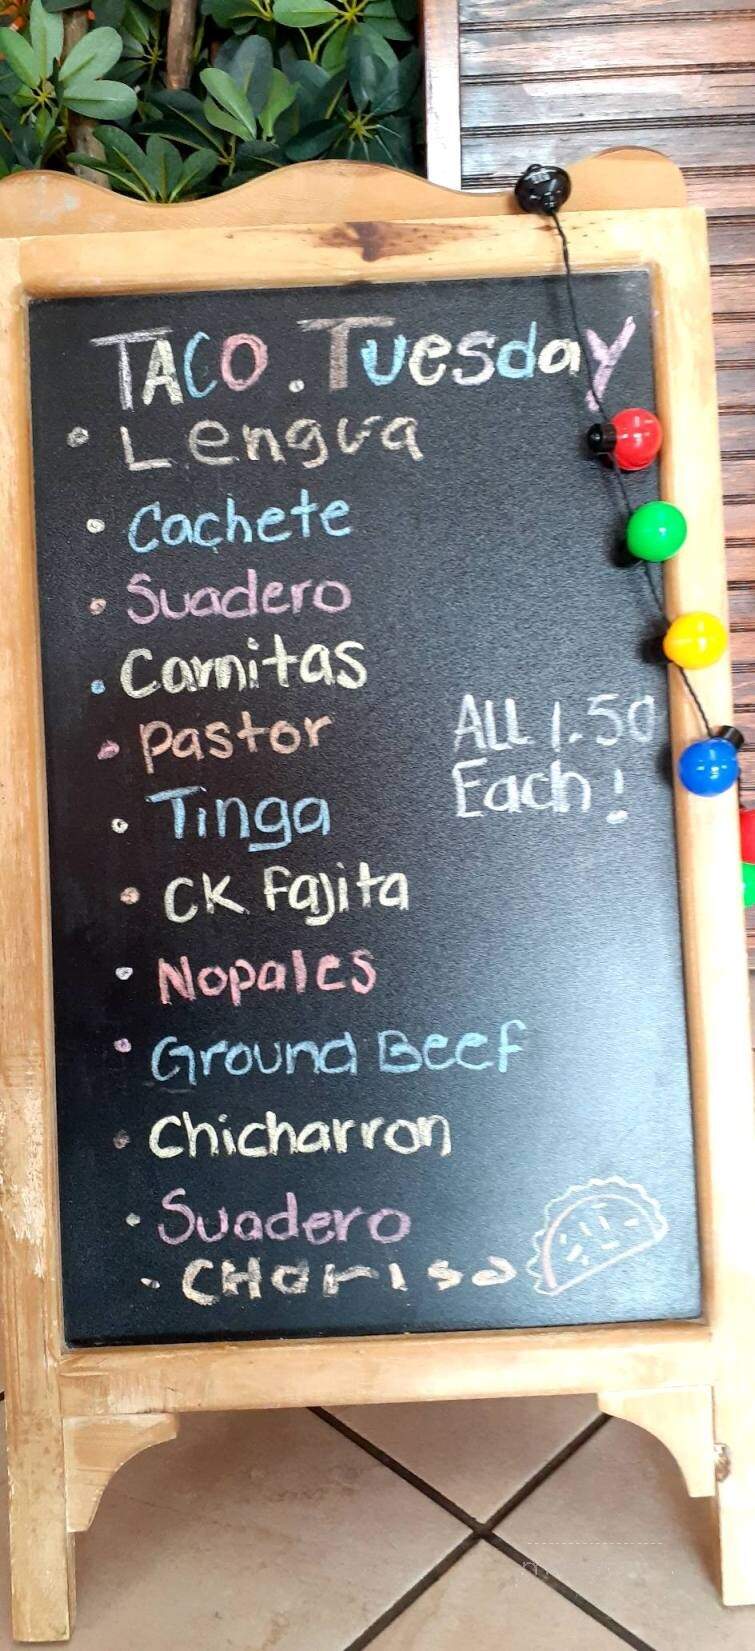 TACO. Tuesday
• Lengua
• Cachete
• Suadero
• Carnitas
• Pastor
• Tinga
• CK Fajita
• Nopales
• Ground Beef
• Chicharron
• Suadero
• CHoriso
ALL 1.50
Each!